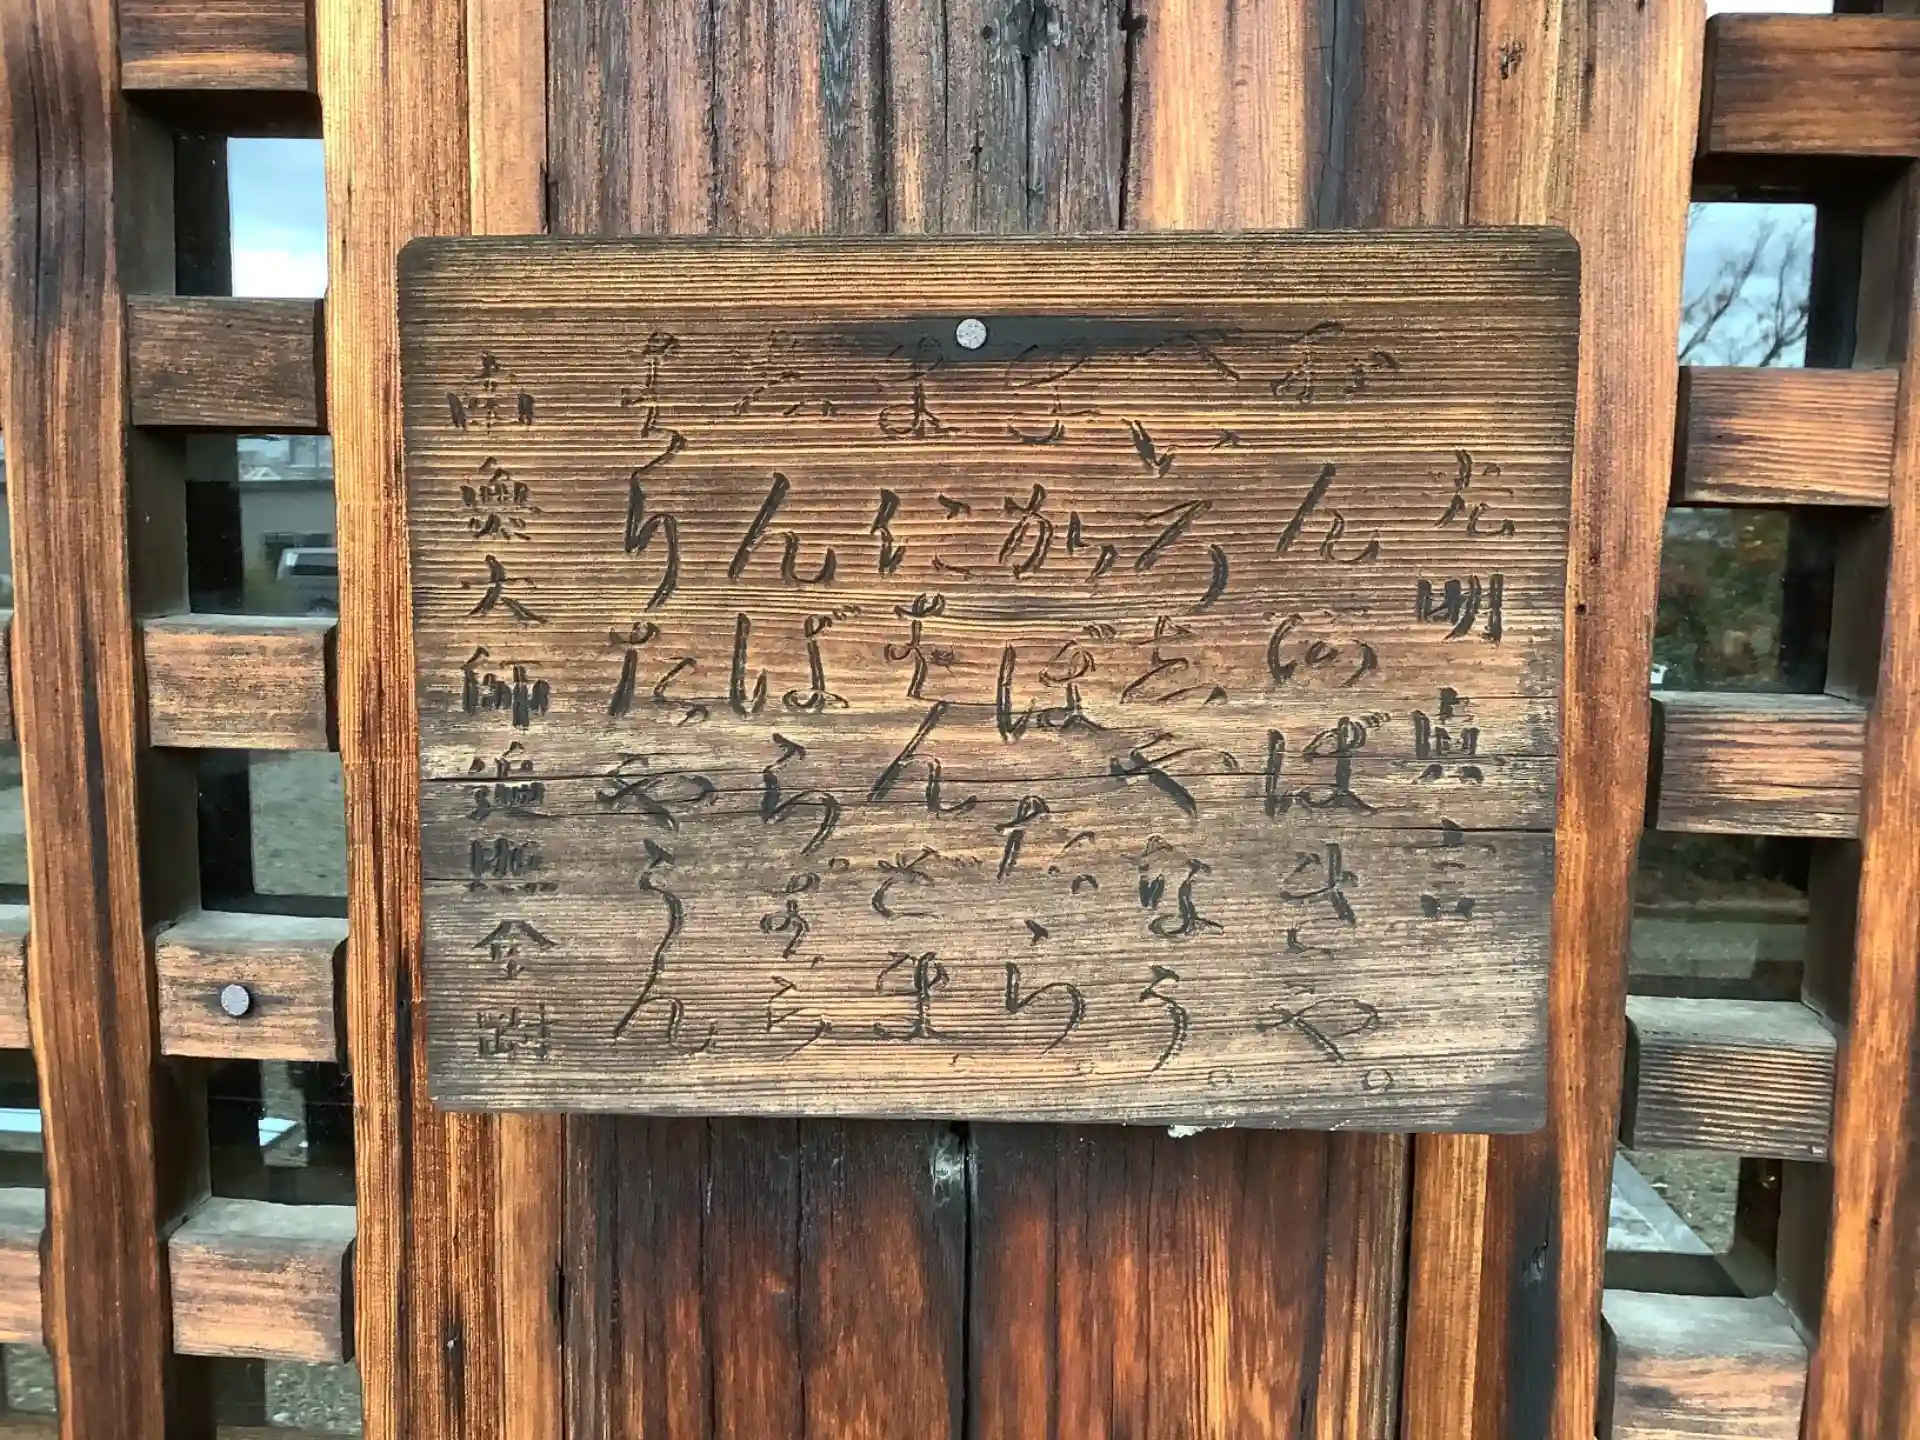 光明眞言
おんあぼきや。
べいろしやなう。
まかぼだら。
まにはんどま。
じんばらはら
ばらりたやうん
南無大師遍照金剛